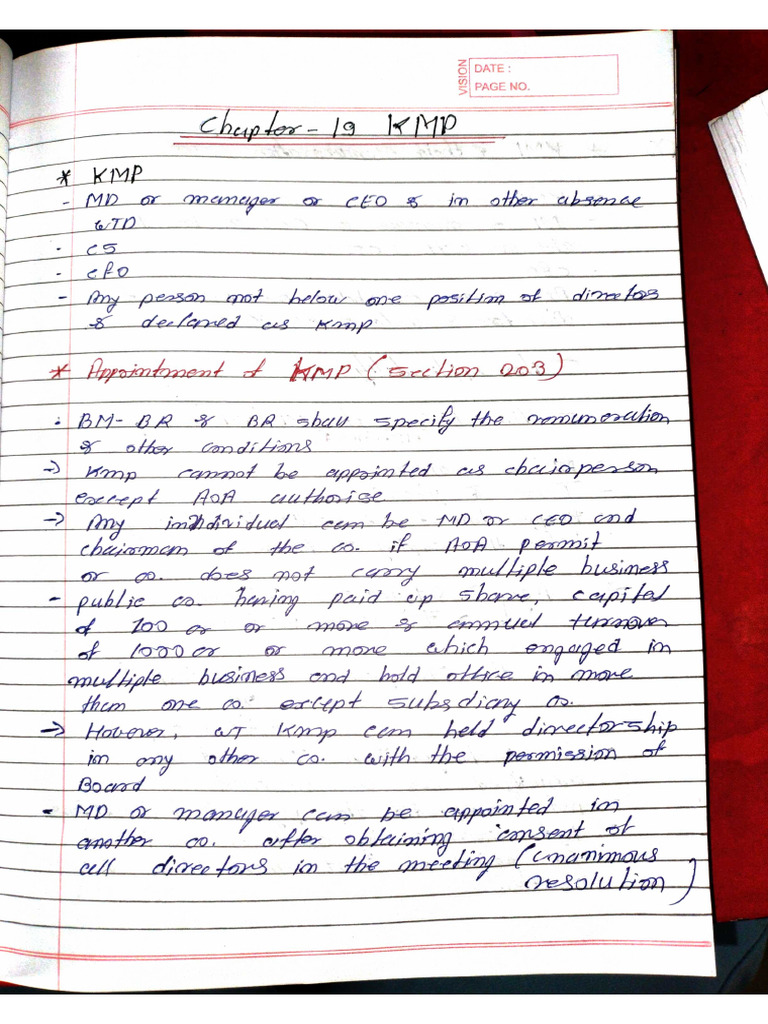 VISION
DATE :
PAGE NO.
Chapter - 19 KMP
* KMP
- MD or manager or CEO & in other absence
WTD
- CS
- CFO
- Any person not below one position of directors
& declared as Kmp
* Appointment of KMP (Section 203)
: BM - BR & BR shall specify the remuneration
& other conditions
-> Kmp cannot be appointed as chairperson
except AOA authorise
-> Any individual can be MD or CEO and
chairman of the co. if AOA permit
or co. does not carry multiple business
- public co. having paid up share, capital
of 100 cr or more & annual turnover
of 1000 cr or more which engaged in
multiple business and hold office in more
than one co. except subsdiary co.
-> However, WT Kmp can held directorship
in any other co. with the permission of
Board
- MD or manager can be appointed in
another co. after obtaining consent of
all directors in the meeting (unanimous
resolution)